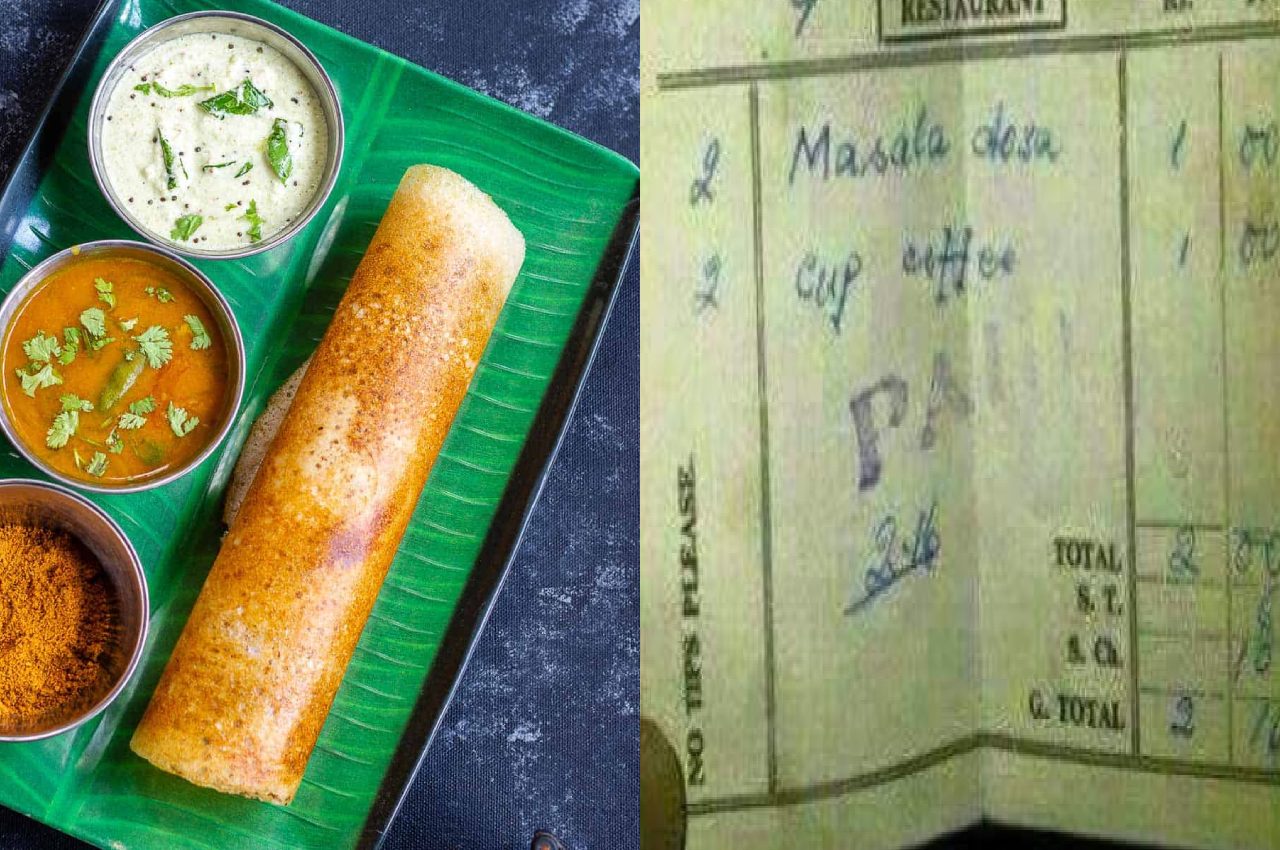 RESTAURANT
2 Masala dosa 1 00
2 cup coffee 1 00
PAI
2.16
NO TIPS PLEASE
TOTAL 2 00
S. T.
S. Ch. 10
G. TOTAL 2 16